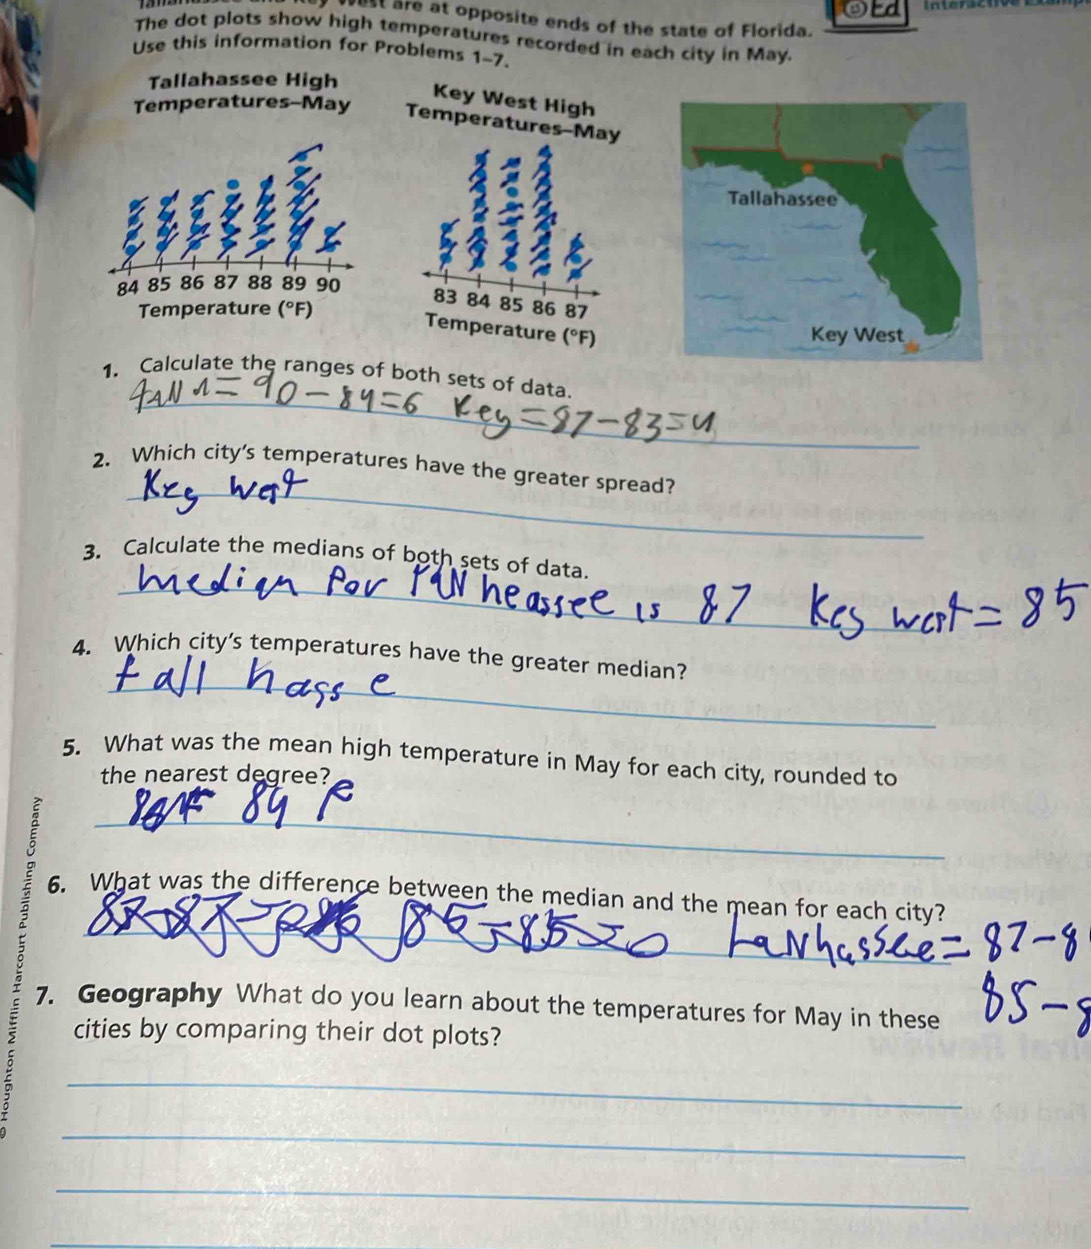 are at opposite ends of the state of Florida.
The dot plots show high temperatures recorded in each city in May.
Use this information for Problems 1–7.
Ed
Tallahassee High
Temperatures–May
Key West High
Temperatures–May
84 85 86 87 88 89 90
Temperature (°F)
83 84 85 86 87
Temperature (°F)
Tallahassee
Key West
1. Calculate the ranges of both sets of data.
= 90 - 84 = 6 Key = 87 - 83 = 4
2. Which city's temperatures have the greater spread?
Key West
3. Calculate the medians of both sets of data.
median for is 87 = 85
4. Which city's temperatures have the greater median?
tall hasse
5. What was the mean high temperature in May for each city, rounded to
the nearest degree?
84
6. What was the difference between the median and the mean for each city?
= 87 -
85 -
7. Geography What do you learn about the temperatures for May in these
cities by comparing their dot plots?
© Houghton Mifflin Harcourt Publishing Company